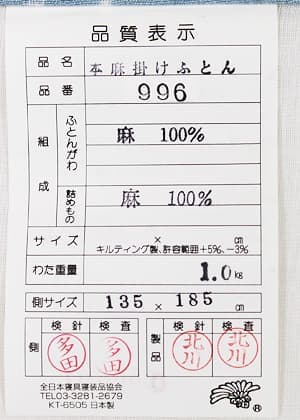 品質表示
品名 本麻掛けふとん
品番 996
組成 ふとんがわ 麻 100%
詰めもの 麻 100%
サイズ × cm
キルティング製、許容範囲+5%、-3%
わた重量 1.0kg
側サイズ 135 × 185 cm
側 検針 検査 製品 検針 検査
多田 多田 北川 北川
全日本寝具寝装品協会
TEL03-3281-2679
KT-6505 日本製
®